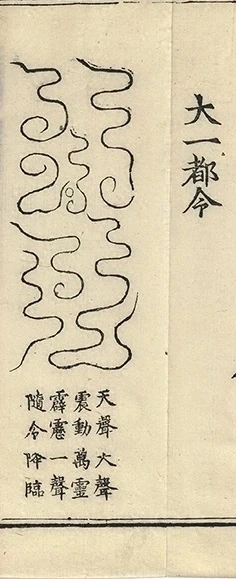 大一都令
天聲大聲
震動萬靈
霹靂一聲
隨令降臨